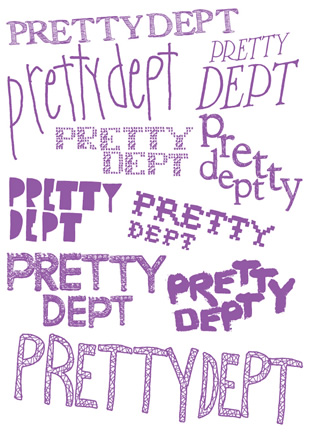 PRETTY DEPT
pretty dept
PRETTY
DEPT
PRETTY
DEPT
pretty
deptt
PRETTY
DEPT
PRETTY
DEPT
PRETTY
DEPT
PRETTY
DEPT
PRETTY DEPT